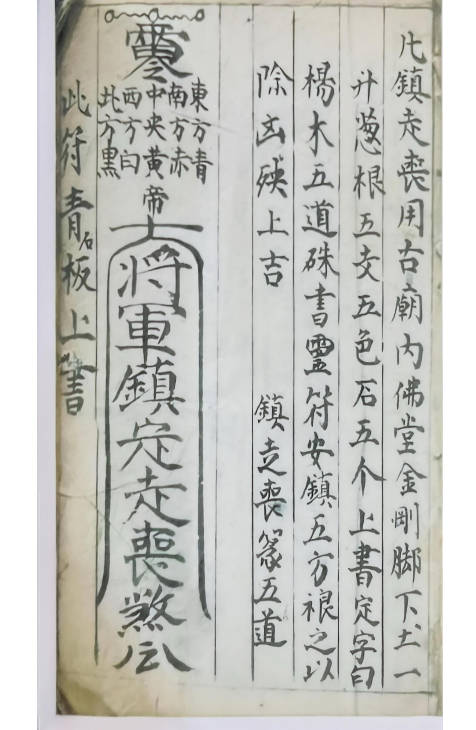 凢鎮走喪用古廟内佛堂金剛脚下土一
升葱根五支五色石五个上書定字向
楊木五道硃書靈符安鎮五方禳之以
除凶殃上吉 鎮走喪篆五道
東方青
南方赤
中央黄
西方白
北方黒
帝
大將軍鎮定走喪煞公
此符青石板上書